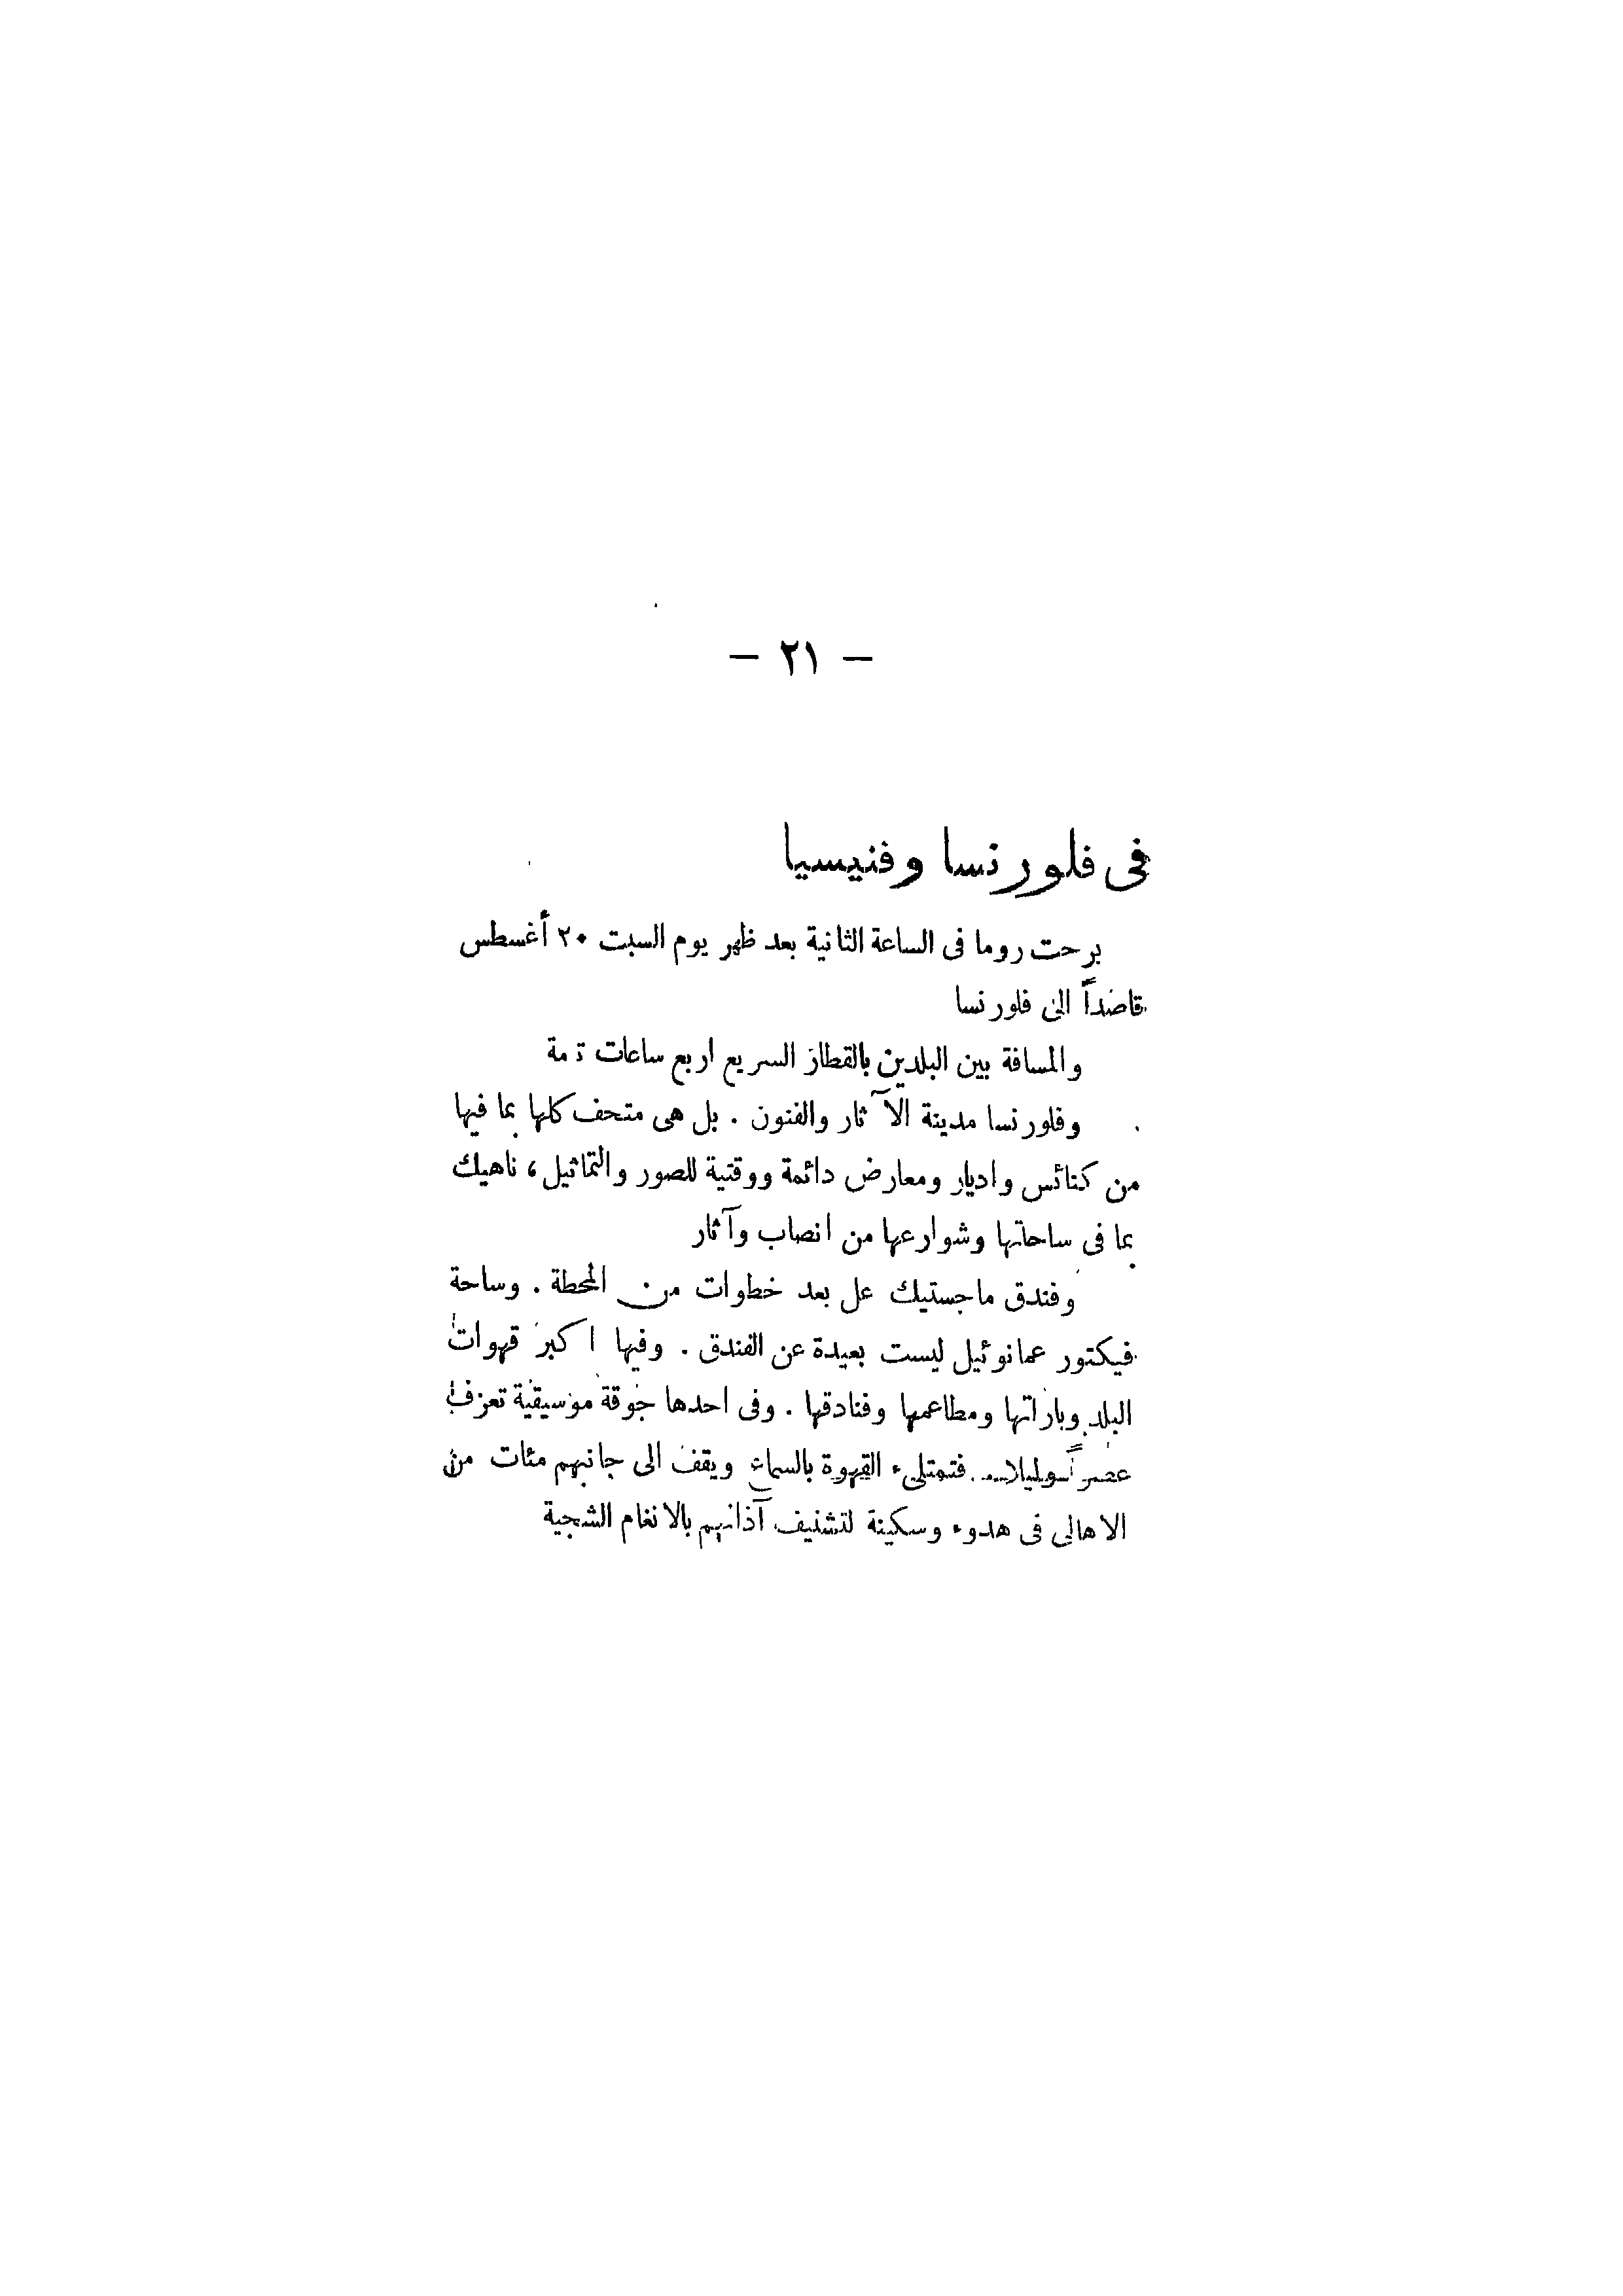 — ٢١ —
فى فلورنسا وفنيسيا
برحت روما فى الساعة الثانية بعد ظهر يوم السبت ٢٠ أغسطس
قاصداً الى فلورنسا
والمسافة بين البلدين بالقطار السريع اربع ساعات
وفلورنسا مدينة الآثار والفنون . بل هى متحف كلها بما فيها
من كنائس واديار ومعارض دائمة ووقتية للصور والتماثيل ، ناهيك
بما فى ساحاتها وشوارعها من انصاب وآثار
وفندق ماجستيك على بعد خطوات من المحطة . وساحة
فيكتور عمانوئيل ليست بعيدة عن الفندق . وفيها اكبر قهوات
البلد وباراتها ومطاعمها وفنادقها . وفى احدها جوقة موسيقية تعزف
عصراً وليلا . فتمتلىء القهوة بالسماع ويقف الى جانبهم مئات من
الاهالى فى هدوء وسكينة لتشنيف آذانهم بالانغام الشجية